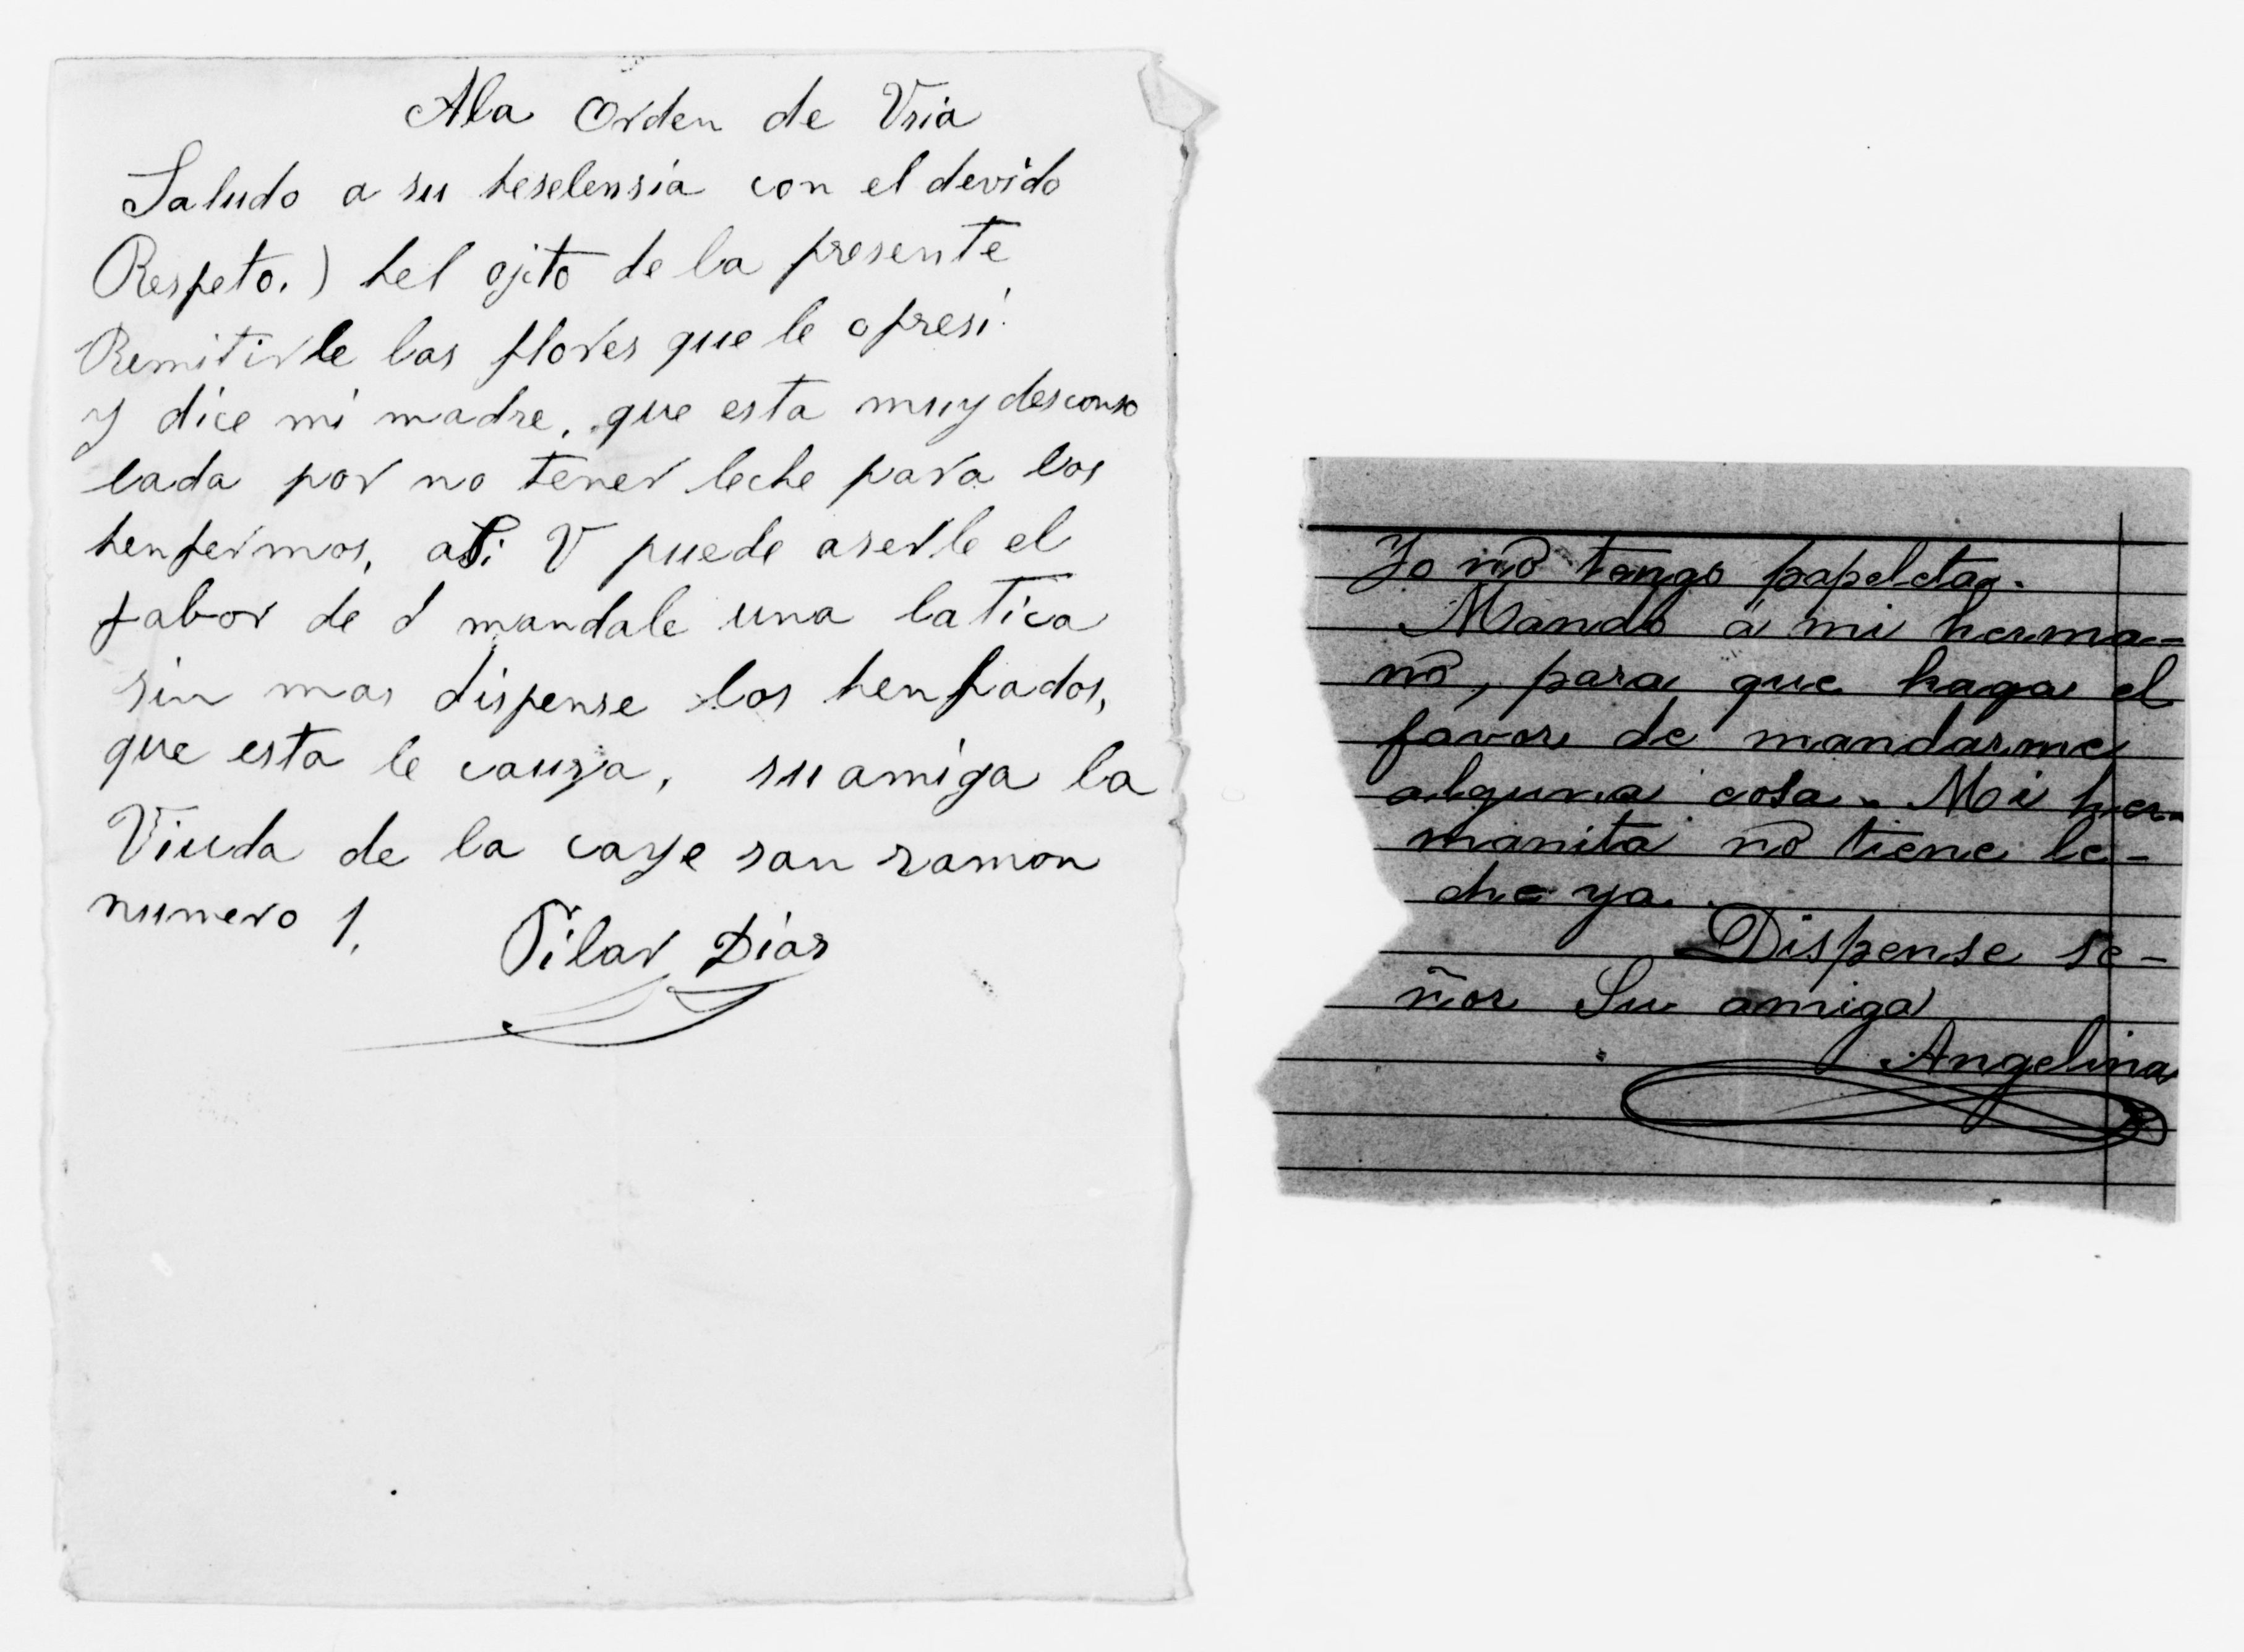 Ala Orden de Vsia
Saludo a su heselensia con el devido
Respeto.) hel ojito de la presente
Remitirle las flores que le ofresi
y dice mi madre, que esta muy desconso
lada por no tener leche para los
henfermos, asi V puede aserle el
fabor de d mandale una latica
sin mas dispense los henfados,
que esta le cauza, su amiga la
Viuda de la caye san ramon
numero 1,
Pilar Dias
Yo no tengo papeletas.
Mando á mi herma-
no, para que haga el
favor de mandarme
alguna cosa. Mi her-
manita no tiene le-
che ya.
Dispense se-
ñor Su amiga
Angelina